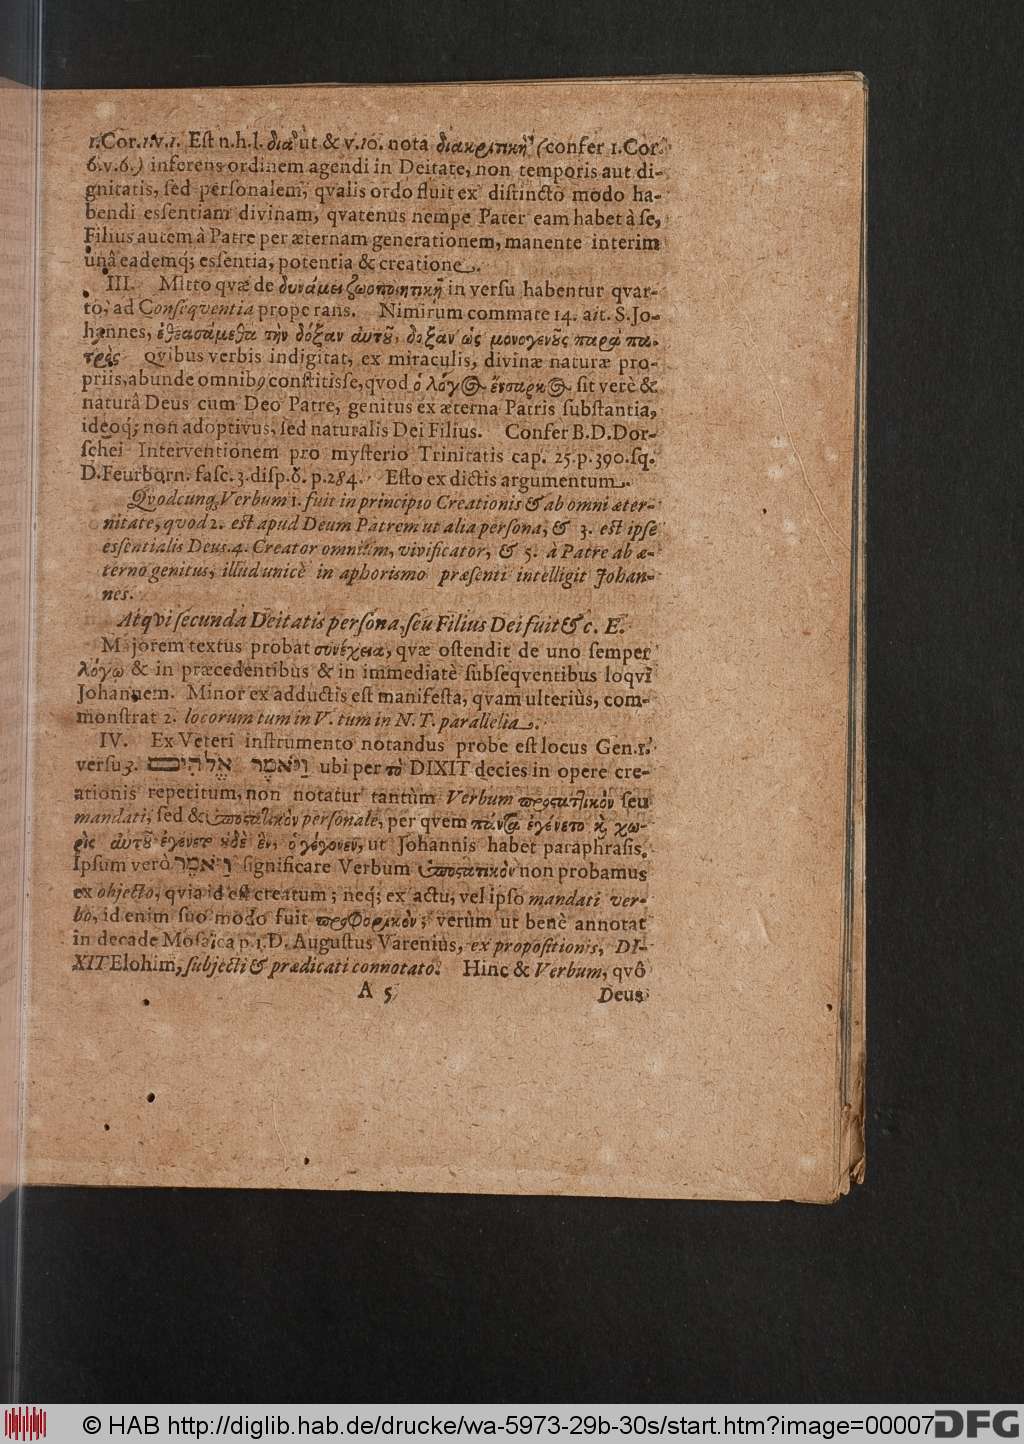 1. Cor. 1. v. 1. Est n. h. l. διὰ ut & v. 10. nota διακριτικὴ (confer 1. Cor.
6. v. 6.) inferens ordinem agendi in Deitate, non temporis aut di-
gnitatis, sed personalem, qvalis ordo fluit ex distincto modo ha-
bendi essentiam divinam, qvatenus nempe Pater eam habet à se,
Filius autem à Patre per æternam generationem, manente interim
unâ eademq; essentia, potentia & creatione.
III. Mitto qvæ de δυνάμει ζωοποιητικῇ in versu habentur qvar-
to, ad Conseqventia properans. Nimirum commate 14. ait. S. Jo-
hannes, ἐθεασάμεθα τὴν δόξαν ἀυτοῦ, δοξαν ὡς μονογενοῦς παρὰ πα-
τρός Qvibus verbis indigitat, ex miraculis, divinæ naturæ pro-
priis, abunde omnibꝰ constitisse, qvod ὁ λόγος ἔνσαρκος sit verè &
naturâ Deus cum Deo Patre, genitus ex æterna Patris substantia,
ideoq́; non adoptivus, sed naturalis Dei Filius. Confer B. D. Dor-
schei Interventionem pro mysterio Trinitatis cap. 25. p. 390. sq.
D. Feurborn. fasc. 3. disp. 6. p. 284. Esto ex dictis argumentum.
Qvodcunq; Verbum 1. fuit in principio Creationis & ab omni æter-
nitate, qvod 2. est apud Deum Patrem ut alia persona, & 3. est ipse
essentialis Deus. 4. Creator omnium, vivificator, & 5. à Patre ab æ-
terno genitus, illud unicè in aphorismo præsenti intelligit Johan-
nes.
Atqvi secunda Deitatis persona, seu Filius Dei fuit & c. E.
Majorem textus probat συνέχεια, qvæ ostendit de uno semper
λόγῳ & in præcedentibus & in immediatè subseqventibus loqvi
Johannem. Minor ex adductis est manifesta, qvam ulteriùs, com-
monstrat 2. locorum tum in V. tum in N. T. parallelia.
IV. Ex Veteri instrumento notandus probe est locus Gen. 1.
versu 3. וַיֹּאמֶר אֱלֹהִים ubi per τὸ DIXIT decies in opere cre-
ationis repetitum, non notatur tantùm Verbum προστατικὸν seu
mandati, sed & ὑποστατικὸν personale, per qvem πάντα ἐγένετο κὶ χω-
ρὶς ἀυτοῦ ἐγένετο ουδὲ ἓν, ὁ γέγονεν, ut Johannis habet paraphrasis.
Ipsum verò וַיֹּאמֶר significare Verbum ὑποστατικὸν non probamus
ex objecto, qvia id est creatum; neq; ex actu, vel ipso mandati ver-
bo, id enim suo modo fuit προφορικὸν; verùm ut benè annotat
in decade Mosaica p. 1. D. Augustus Varenius, ex propositionis, DI-
XIT Elohim, subjecti & prædicati connotato. Hinc & Verbum, qvô
A 5 Deus
© HAB http://diglib.hab.de/drucke/wa-5973-29b-30s/start.htm?image=00007
DFG